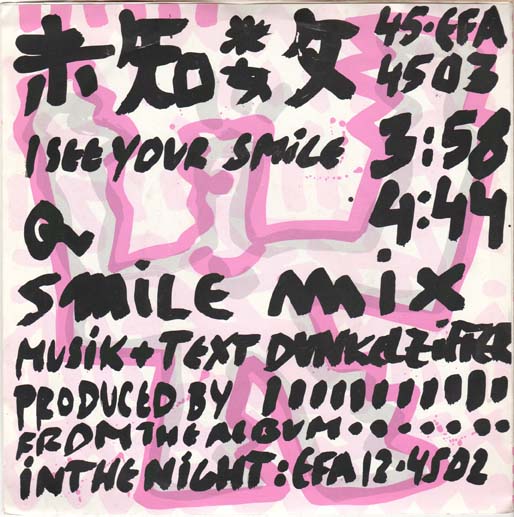 未知数 45·EFA
4503
I SEE YOUR SMILE 3:58
Q 4:44
SMILE MIX
MUSIK + TEXT DUNKELZIFFER
PRODUCED BY !!!!!!!!!!!!
FROM THE ALBUM.......
IN THE NIGHT: EFA 12·4502